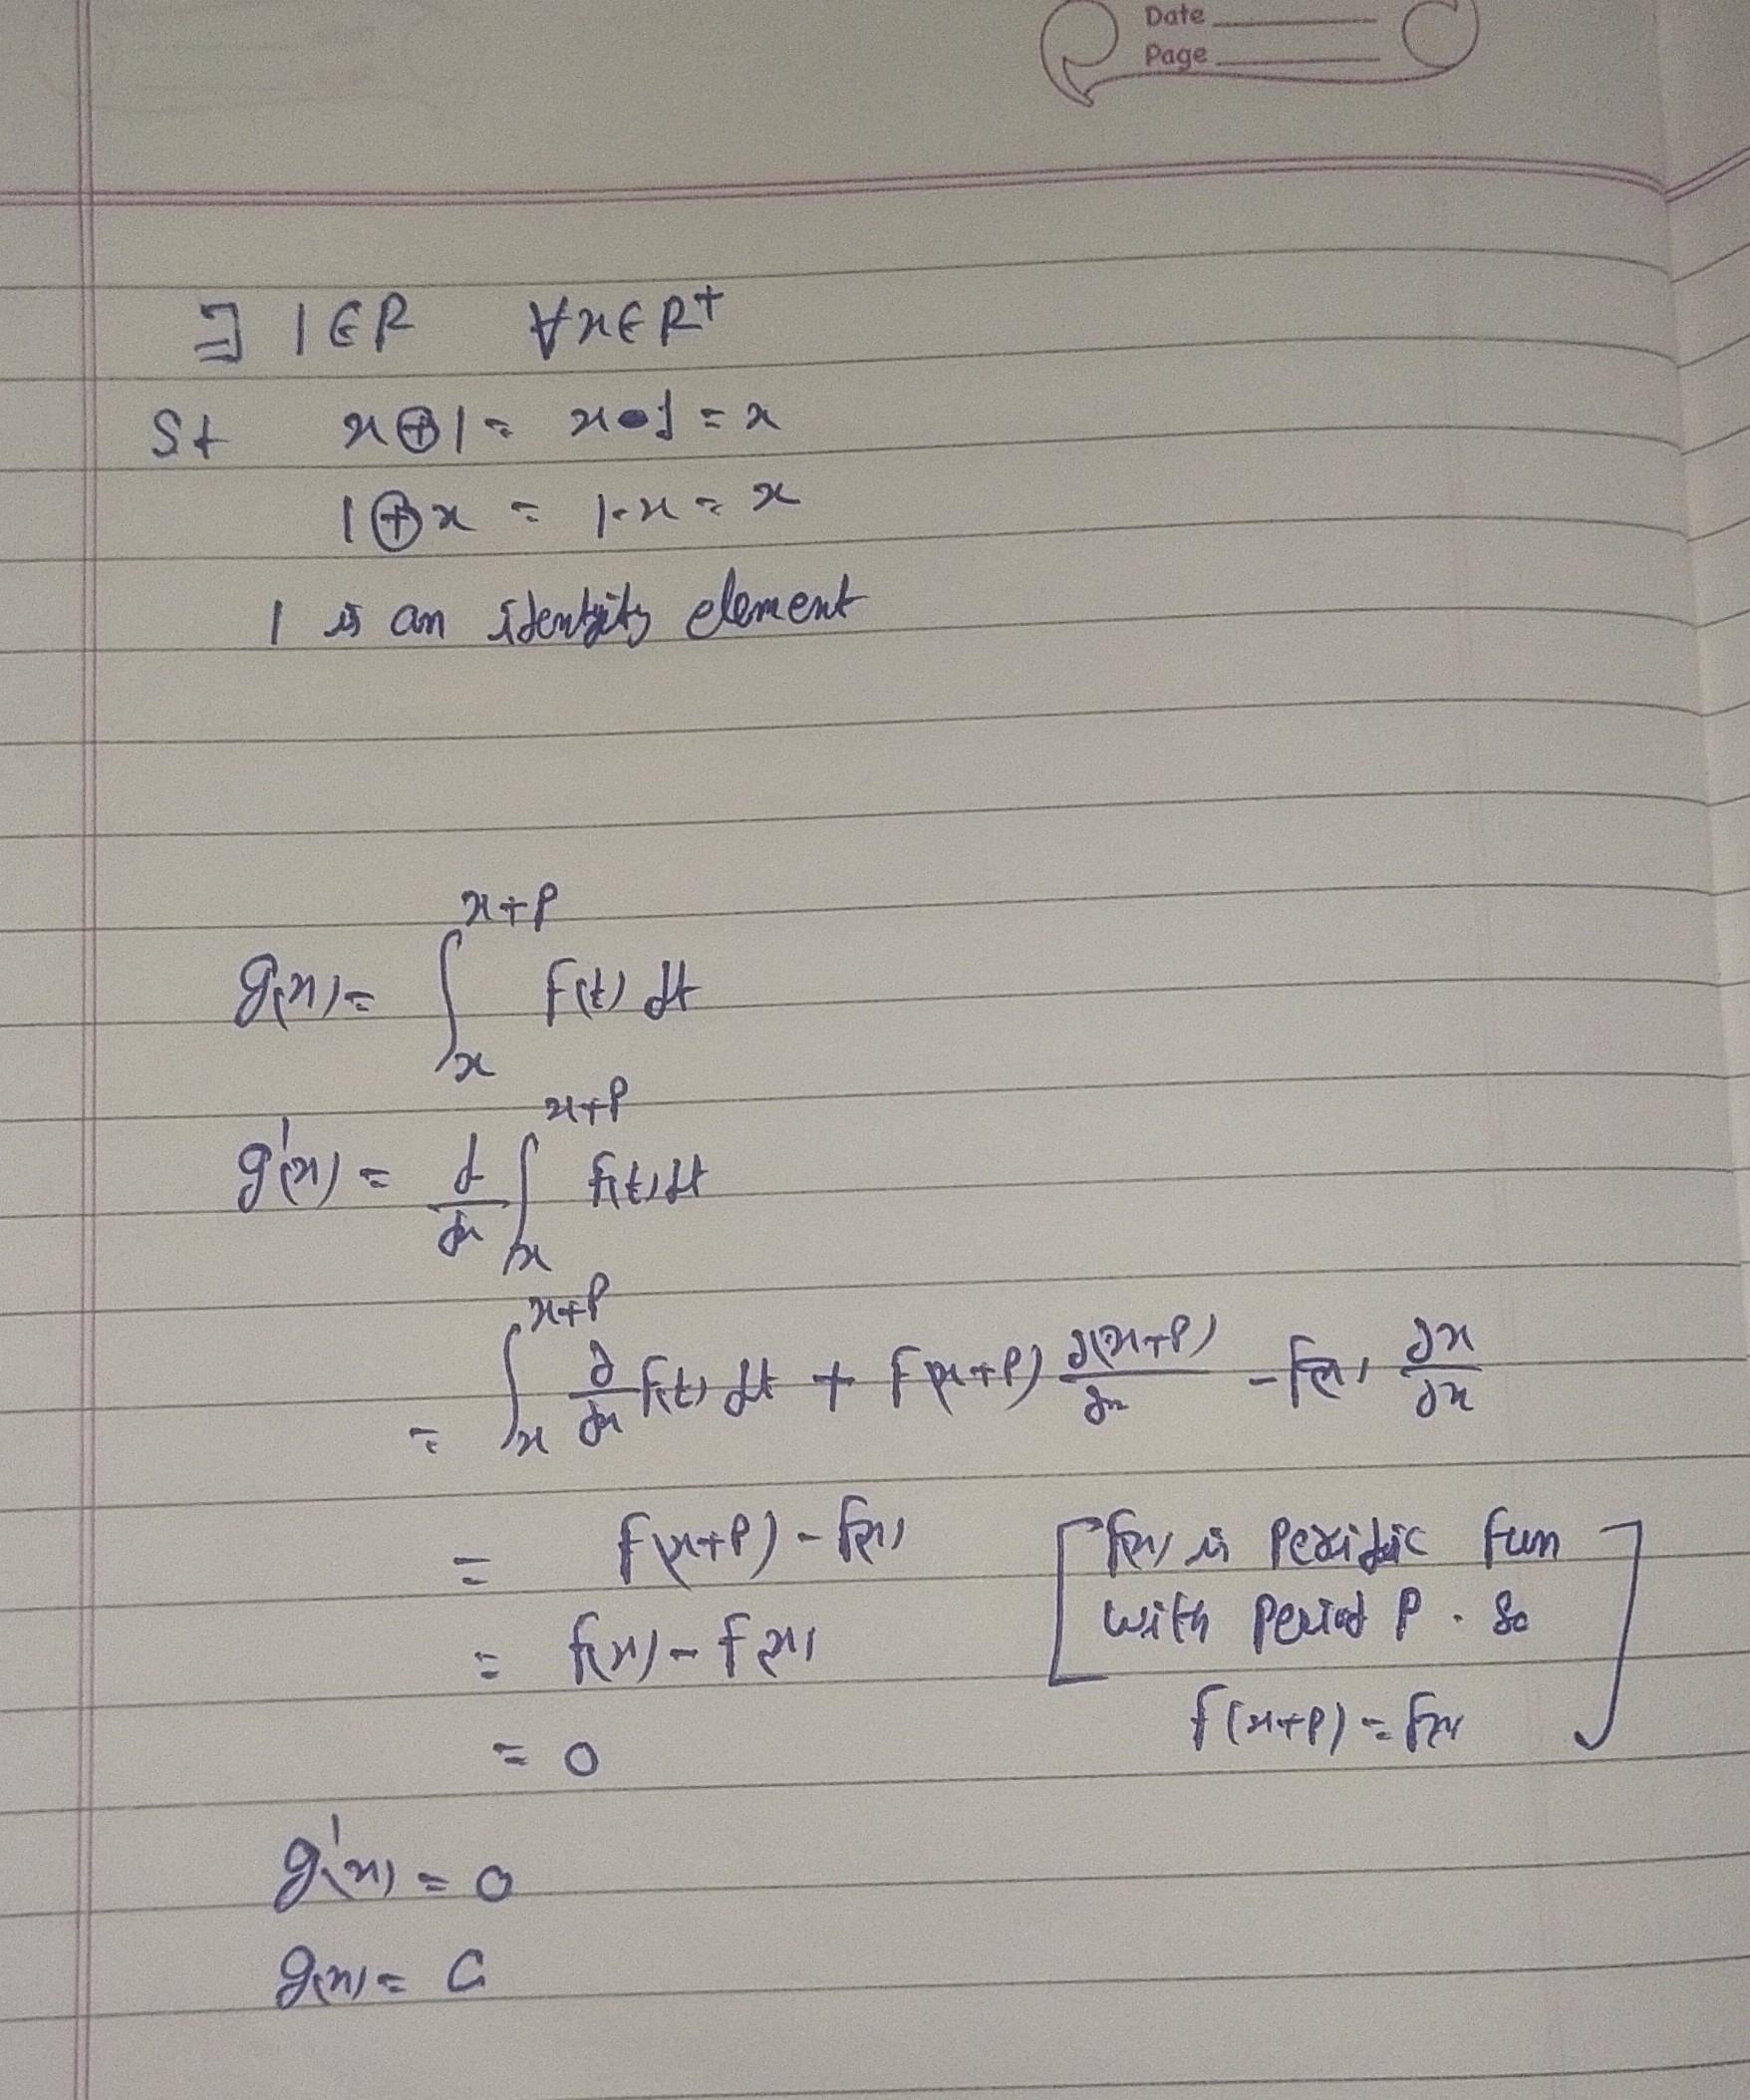 Date
Page
∃ 1 ∈ R ∀x ∈ R⁺
St x ⊕ 1 = x • 1 = x
1 ⊕ x = 1·x = x
1 is an identity element
g(x) = ∫ₓˣ⁺ᴾ f(t) dt
g'(x) = d/dx ∫ₓˣ⁺ᴾ f(t) dt
= ∫ₓˣ⁺ᴾ ∂/∂x f(t) dt + f(x+P) ∂(x+P)/∂x - f(x) ∂x/∂x
= f(x+P) - f(x) [f(x) is Periodic fun
= f(x) - f(x) with Period P. So
= 0 f(x+P) = f(x)]
g'(x) = 0
g(x) = C